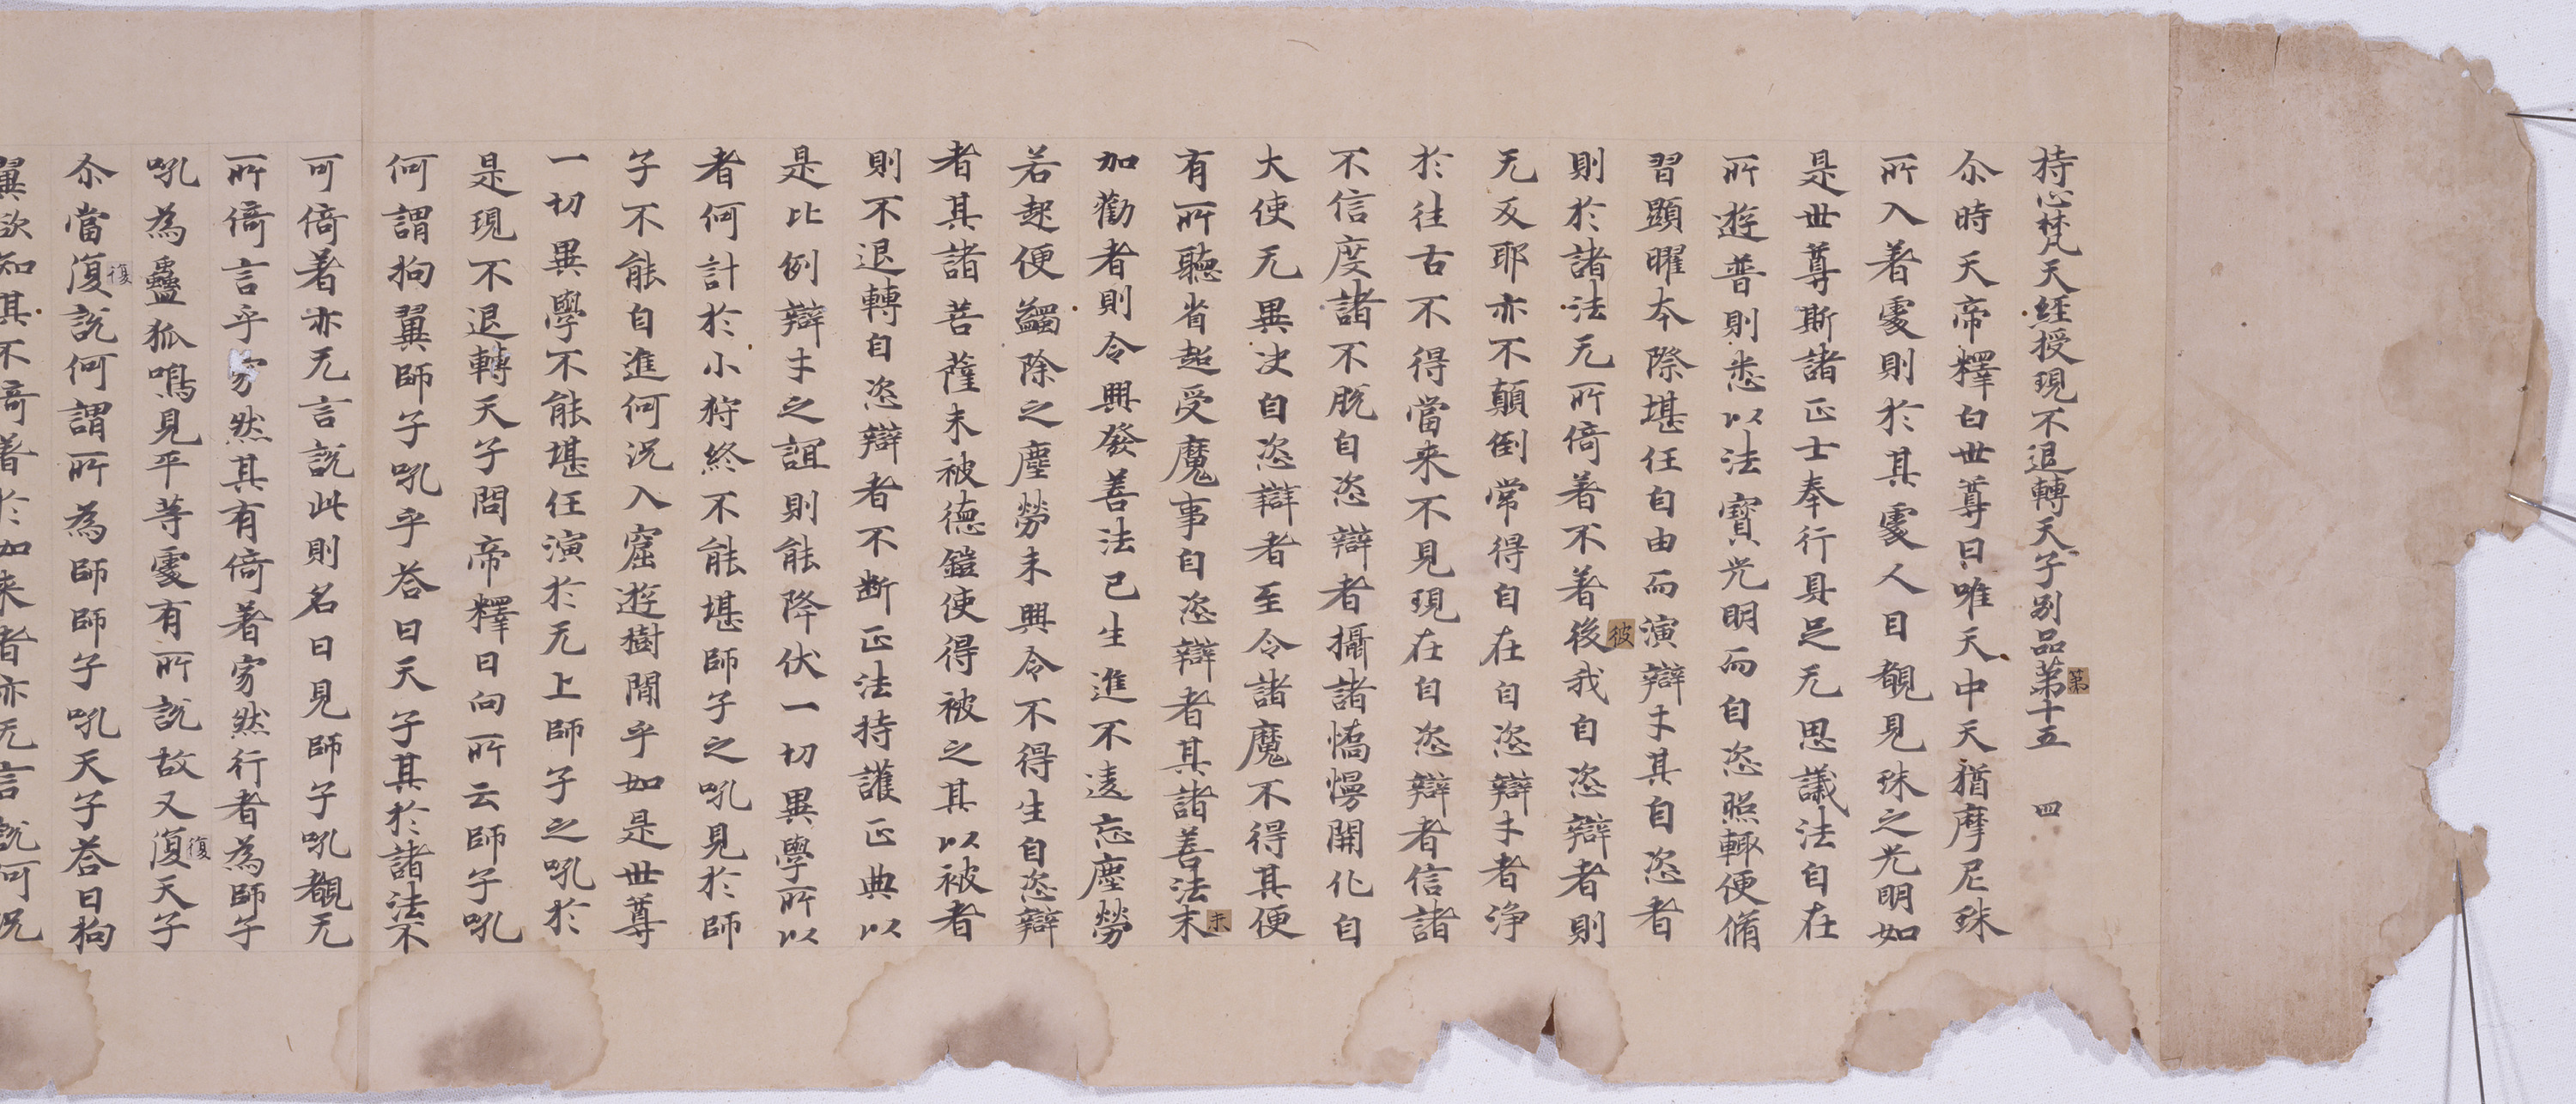 持心梵天經授現不退轉天子別品第十五 四
尒時天帝釋白世尊曰唯天中天猶摩尼珠
所入著處則於其處人目覩見珠之光明如
是世尊斯諸正士奉行具足无思議法自在
所遊普則悉以法寶光明而自恣照輙便脩
習顯曜本際堪任自由而演辯才其自恣者
則於諸法无所倚著不著後我自恣辯者則
无反耶亦不顛倒常得自在自恣辯才者淨
於往古不得當来不見現在自恣辯者信諸
不信度諸不脫自恣辯者攝諸憍慢開化自
大使无異決自恣辯者至令諸魔不得其便
有所聽省超受魔事自恣辯者其諸善法末
加勸者則令興發善法已生進不遠忘塵勞
若起便蠲除之塵勞未興令不得生自恣辯
者其諸菩薩未被德鎧使得被之其以被者
則不退轉自恣辯者不断正法持護正典以
是比例辯才之誼則能降伏一切異學所以
者何計於小狩終不能堪師子之吼見於師
子不能自進何況入窟遊樹間乎如是世尊
一切異學不能堪任演於无上師子之吼於
是現不退轉天子問帝釋曰向所云師子吼
何謂拘翼師子吼乎荅曰天子其於諸法不
可倚著亦无言說此則名曰見師子吼覩无
所倚言乎家然其有倚著家然行者為師子
吼為蠱狐鳴見平等處有所說故又復天子
尒當復說何謂所為師師子吼天子荅曰拘
翼欲知其不倚著於如来者亦无言說何況
第
彼
未
復
復